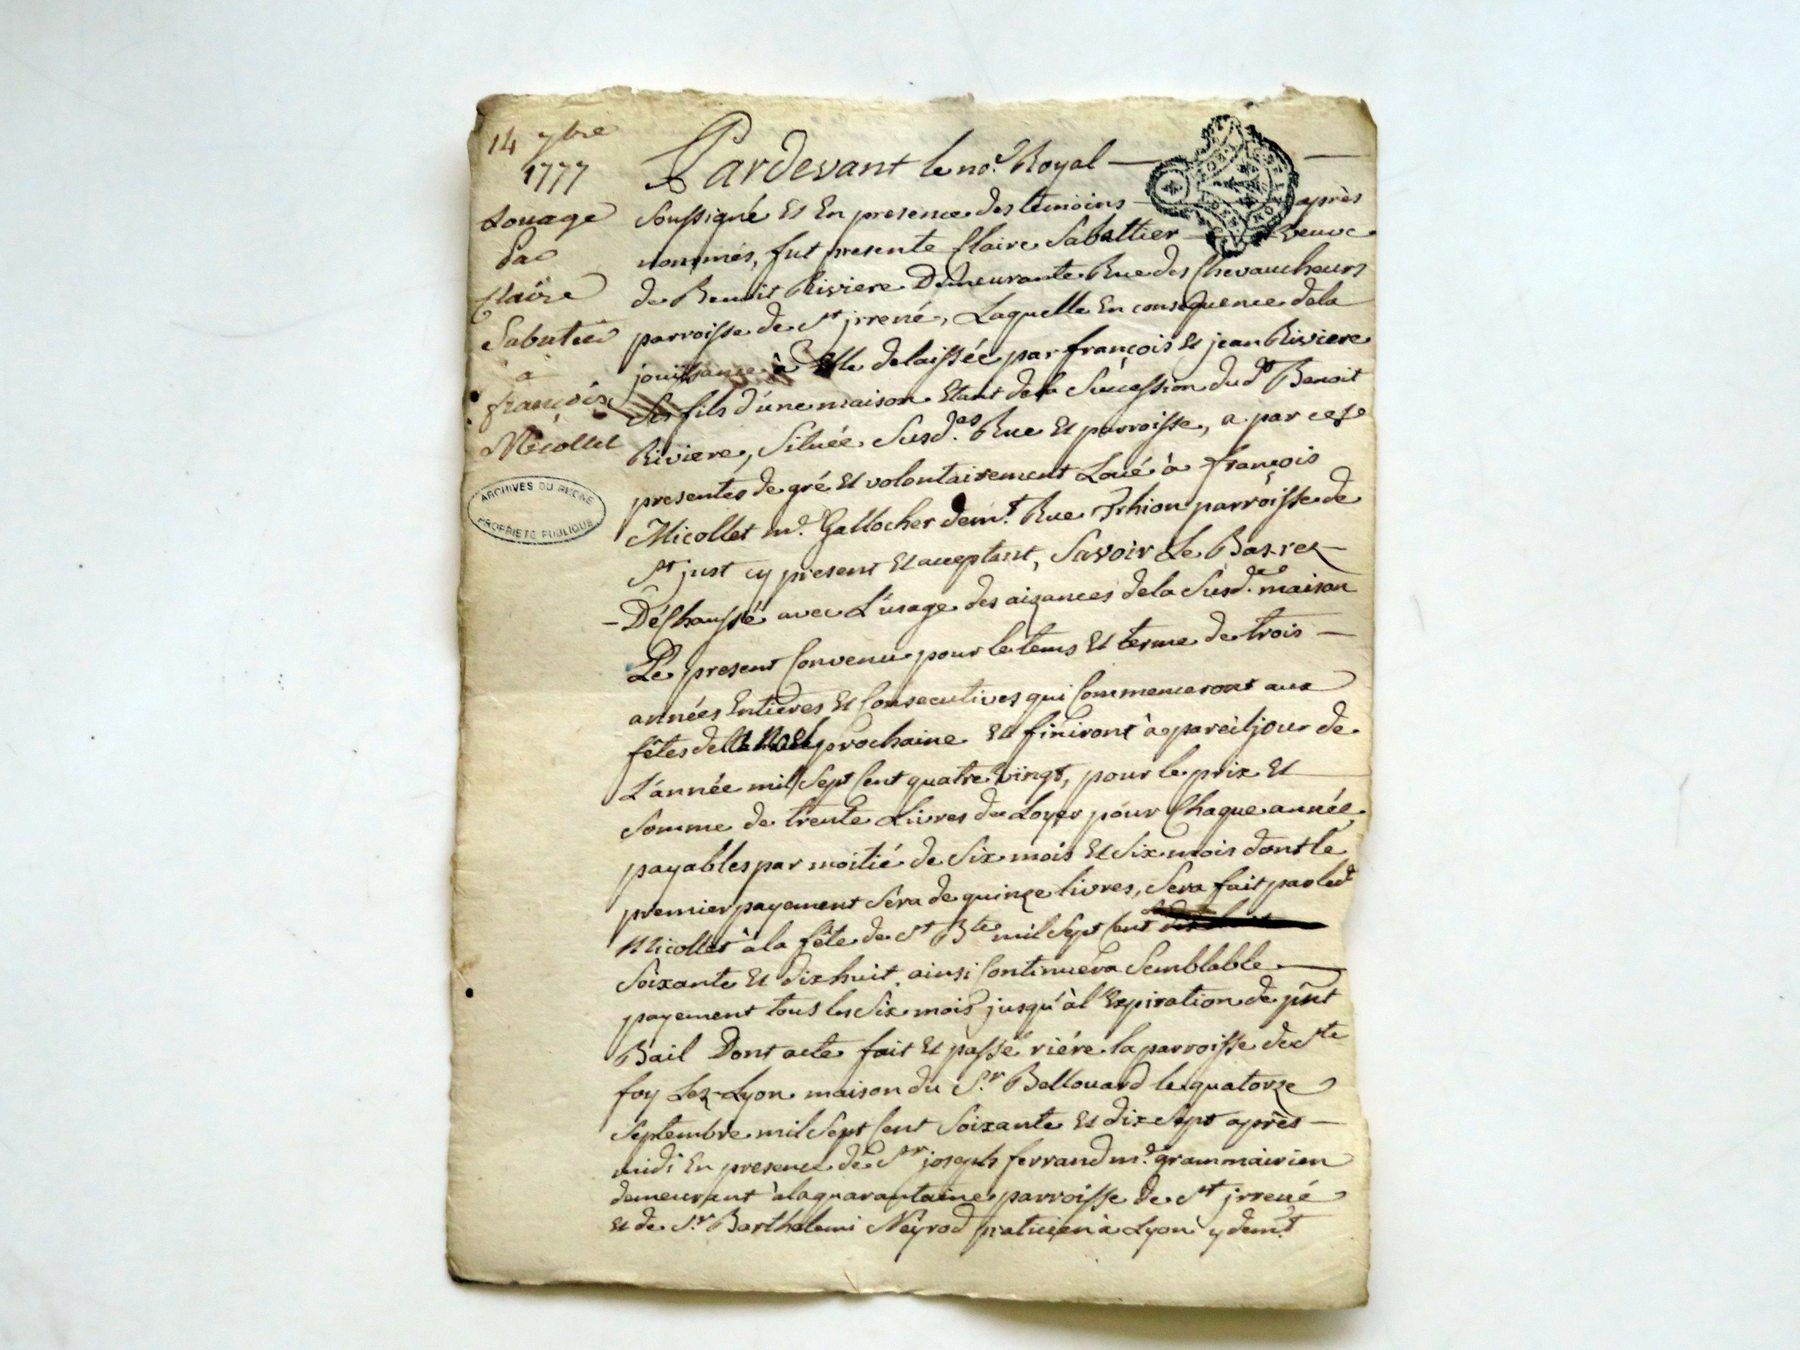 14 7bre
1777
Louage
Par
Claire
Sabatier
a
françois
Micollet
ARCHIVES DU RHÔNE
PROPRIÉTÉ PUBLIQUE
Pardevant le no.e Royal
soussigné Et En presence des temoins après
nommés, fut presente Claire Sabattier Veuve
de Benoit Riviere Demeurante Rue des Chevaucheurs
parroisse de St jrrené, Laquelle En consequence dela
jouissance à Elle delaissée par françois Et jean Riviere
ses fils d'une maison Etant de la Succession dud.t Benoit
Riviere, Située Susd.es Rue Et parroisse, a par ces
presentes de gré Et volontairement Loué à françois
Micollet m.d Gallocher dem.t Rue Trhion parroisse de
St just cy present Et acceptant, Savoir Le Bas rez
Déchaussé avec L'usage des aizances dela Susd.e maison
Le present Convenu pour le tems Et terme de trois
années Entieres Et Consecutives qui Commenceront aux
fêtes de Noel prochaine Et finiront à pareil jour de
L'année mil Sept Cent quatre vingt, pour le prix Et
Somme de trente Livres de Loyer pour Chaque année
payables par moitié de Six mois Et Six mois dont le
premier payement Sera de quinze livres, Sera fait par led.t
Micollet à la fête de St Bte mil Sept Cent
Soixante Et dix huit ainsi Continuera Semblable
payement tous les Six mois jusqu'à l'Expiration de pñt
Bail Dont acte fait Et passé riére la parroisse de Ste
foy Lez-Lyon maison du S.r Bellouard le quatorze
Septembre mil Sept Cent Soixante Et dix Sept après
midi En presence de S.r joseph ferrand m.d grammairien
demeurant à la quarantaine parroisse de St jrrené
Et de S.r Barthelemi Neyrod praticien à Lyon y dem.t